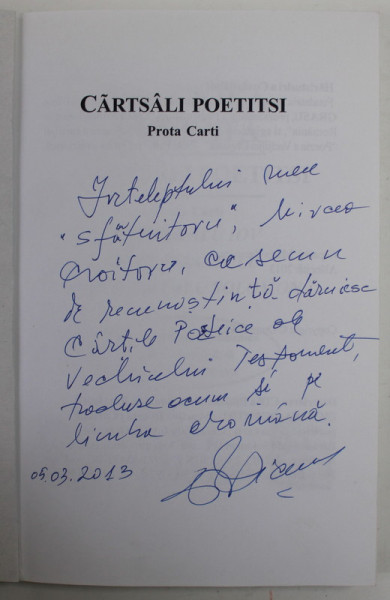 CÃRTSÂLI POETITSI
Prota Carti
Înteleptului meu
"sfătuitoru", Mircea
Croitoru, ca semn
de recunoștintă dăruiesc
Cărtile Poetice ale
Vechiului Testament,
traduse acum si pe
limba aromână.
05.03.2013